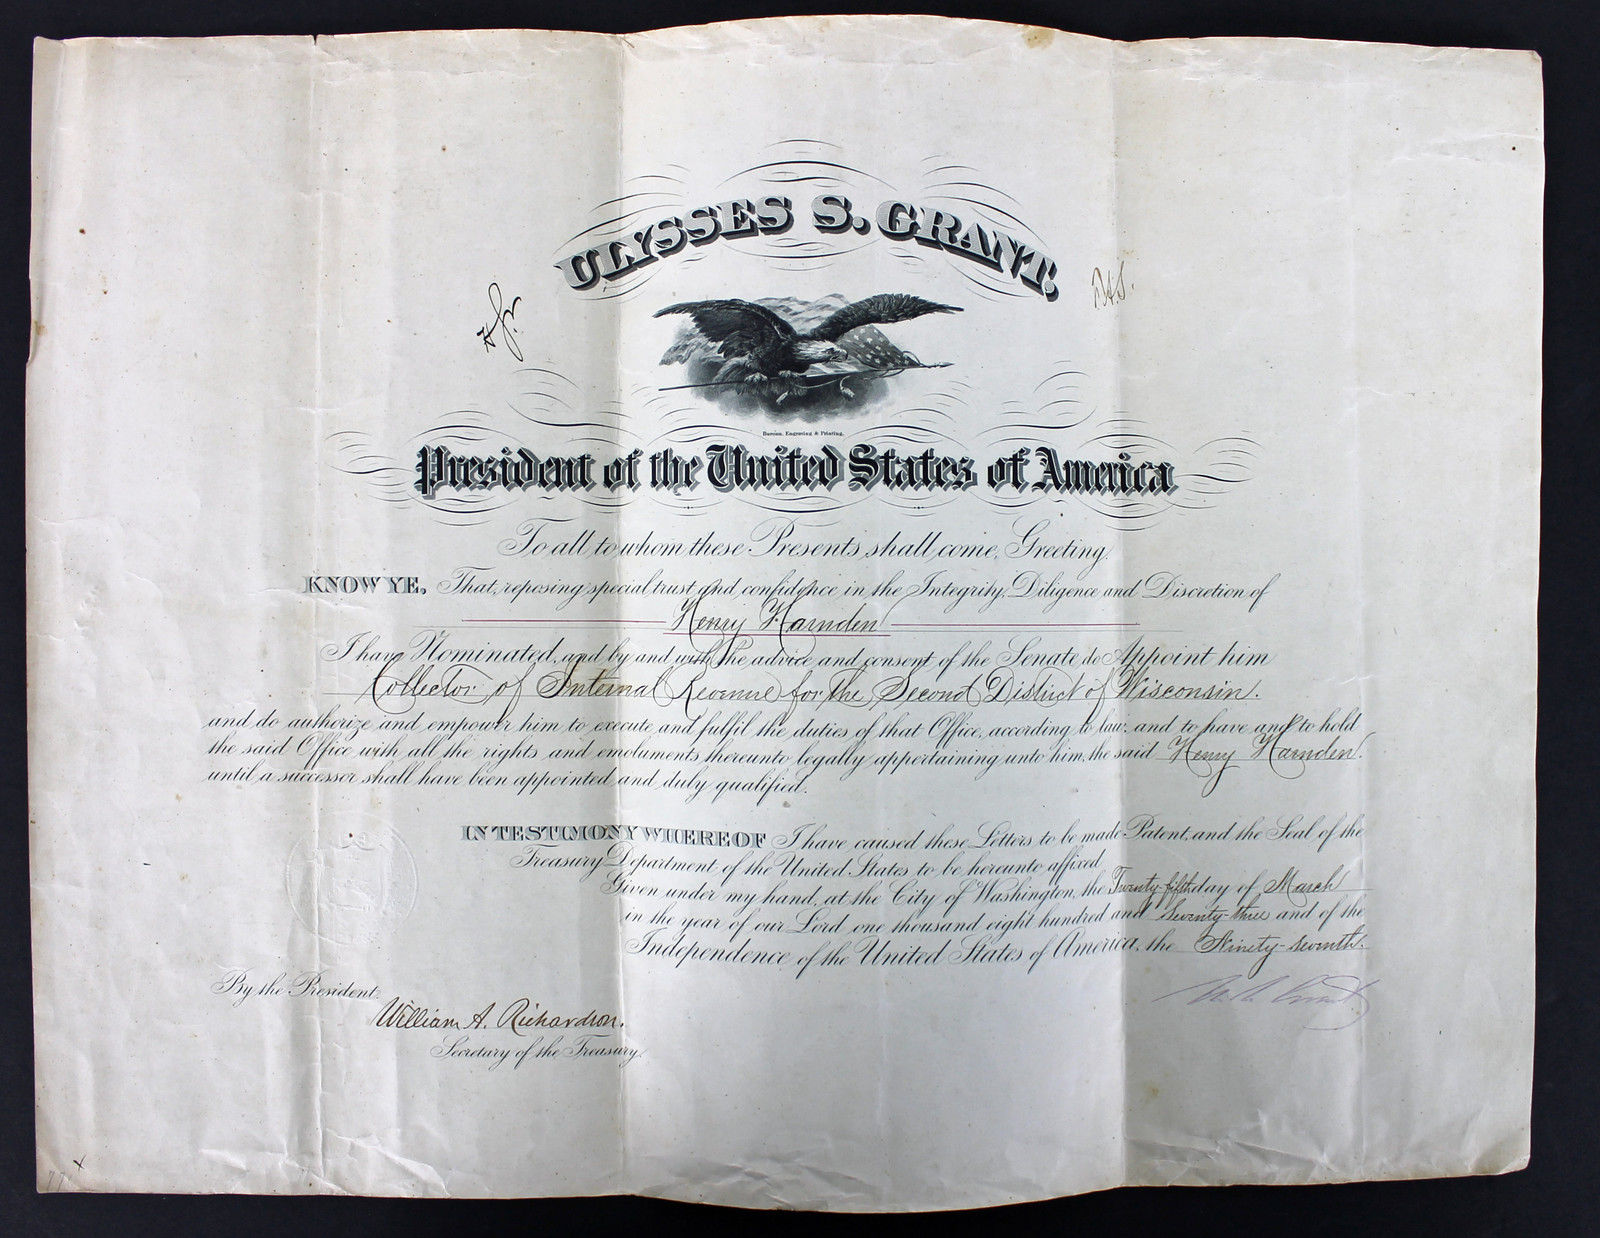 ULYSSES S. GRANT.
Bureau, Engraving & Printing.
President of the United States of America
To all to whom these Presents shall come, Greeting.
KNOW YE, That, reposing special trust and confidence in the Integrity, Diligence and Discretion of
Henry Harnden
I have Nominated, and by and with the advice and consent of the Senate do Appoint him
Collector of Internal Revenue for the Second District of Wisconsin.
and do authorize and empower him to execute and fulfil the duties of that Office, according to law; and to have and to hold
the said Office with all the rights and emoluments thereunto legally appertaining unto him, the said Henry Harnden.
until a successor shall have been appointed and duly qualified.
IN TESTIMONY WHEREOF I have caused these Letters to be made Patent, and the Seal of the
Treasury Department of the United States to be hereunto affixed
Given under my hand, at the City of Washington, the Twenty-fifth day of March
in the year of our Lord one thousand eight hundred and Seventy-three and of the
Independence of the United States of America, the Ninety-seventh.
By the President.
U. S. Grant
William A. Richardson.
Secretary of the Treasury.